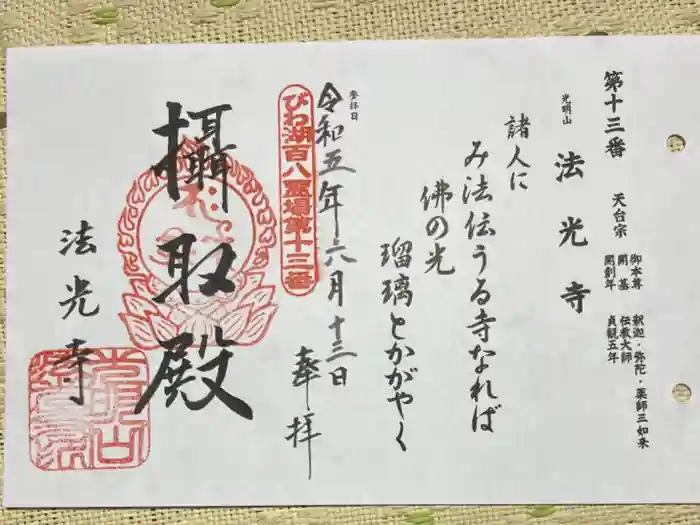 第十三番　天台宗
御本尊　釈迦・弥陀・薬師三如来
開基　伝教大師
開創年　貞観五年
光明山　法光寺
諸人に
み法伝うる寺なれば
佛の光
瑠璃とかがやく
参拝日
令和五年六月十三日
奉拝
びわ湖百八霊場第十三番
攝取殿
法光寺